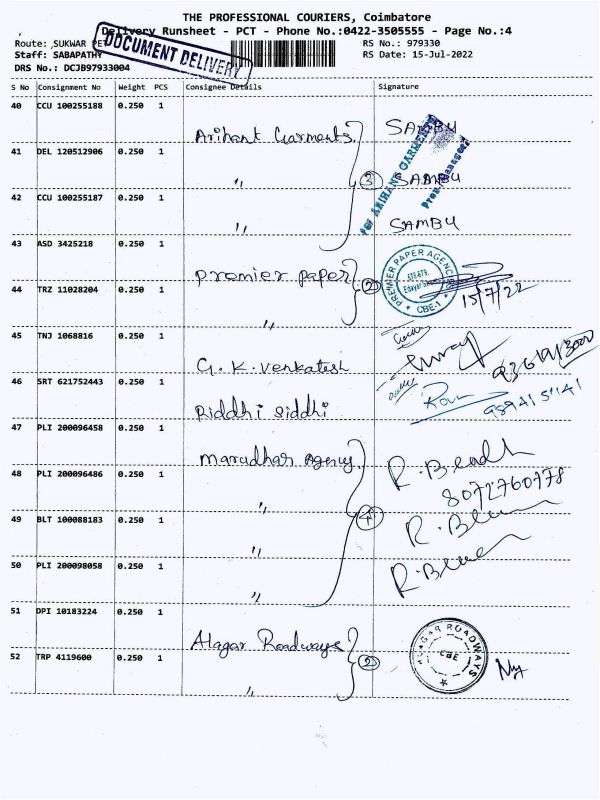 THE PROFESSIONAL COURIERS, Coimbatore
Delivery Runsheet - PCT - Phone No.:0422-3505555 - Page No.:4
Route: SUKWAR PET
RS No.: 979330
Staff: SABAPATHY
RS Date: 15-Jul-2022
DRS No.: DCJB97933004
DOCUMENT DELIVERY
S No Consignment No Weight PCS Consignee Details Signature
40 CCU 100255188 0.250 1
Arihant Garments SAMBU
41 DEL 120512906 0.250 1
" 3 SAMBU
For ARIHANT GARMENTS
42 CCU 100255187 0.250 1
" SAMBU
43 ASD 3425218 0.250 1
Premier paper 2
PREMIER PAPER AGENCY
CBE-1
15/7/22
44 TRZ 11028204 0.250 1
"
45 TNJ 1068816 0.250 1
G. K. Venkatesh
46 SRT 621752443 0.250 1
Riddhi siddhi
47 PLI 200096458 0.250 1
Marudhar Agency
48 PLI 200096486 0.250 1
8072760778
" 4
49 BLT 100088183 0.250 1
"
50 PLI 200098058 0.250 1
"
51 DPI 10183224 0.250 1
Alagar Roadways 2
ALAGAR ROADWAYS
CBE
52 TRP 4119600 0.250 1
"